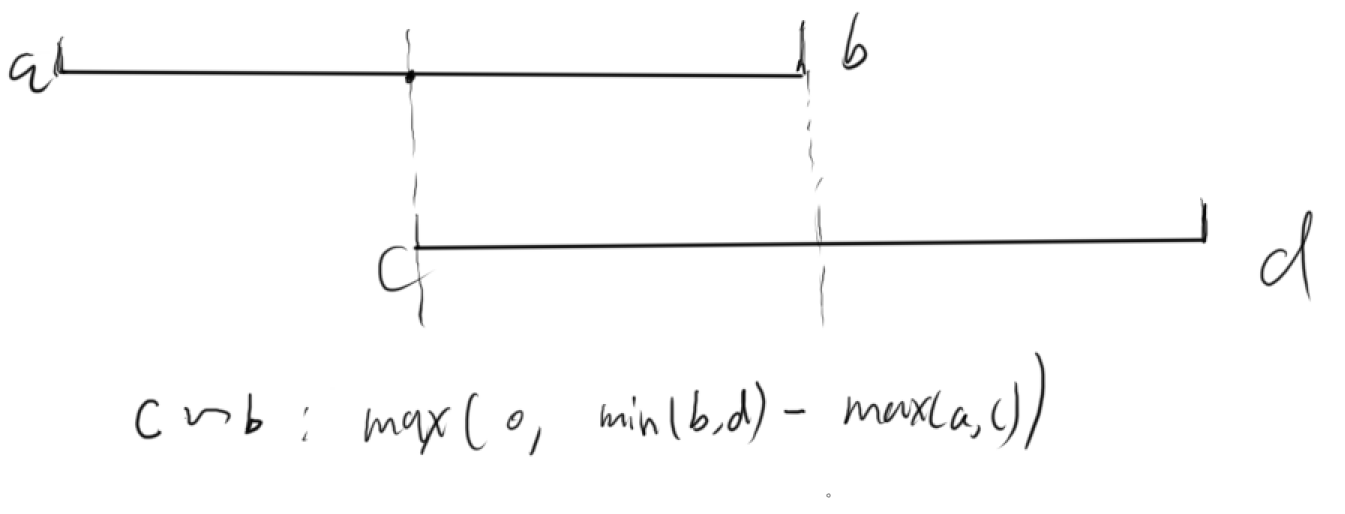 a
b
c
d
c ~ b : max( 0, min(b,d) - max(a,c))